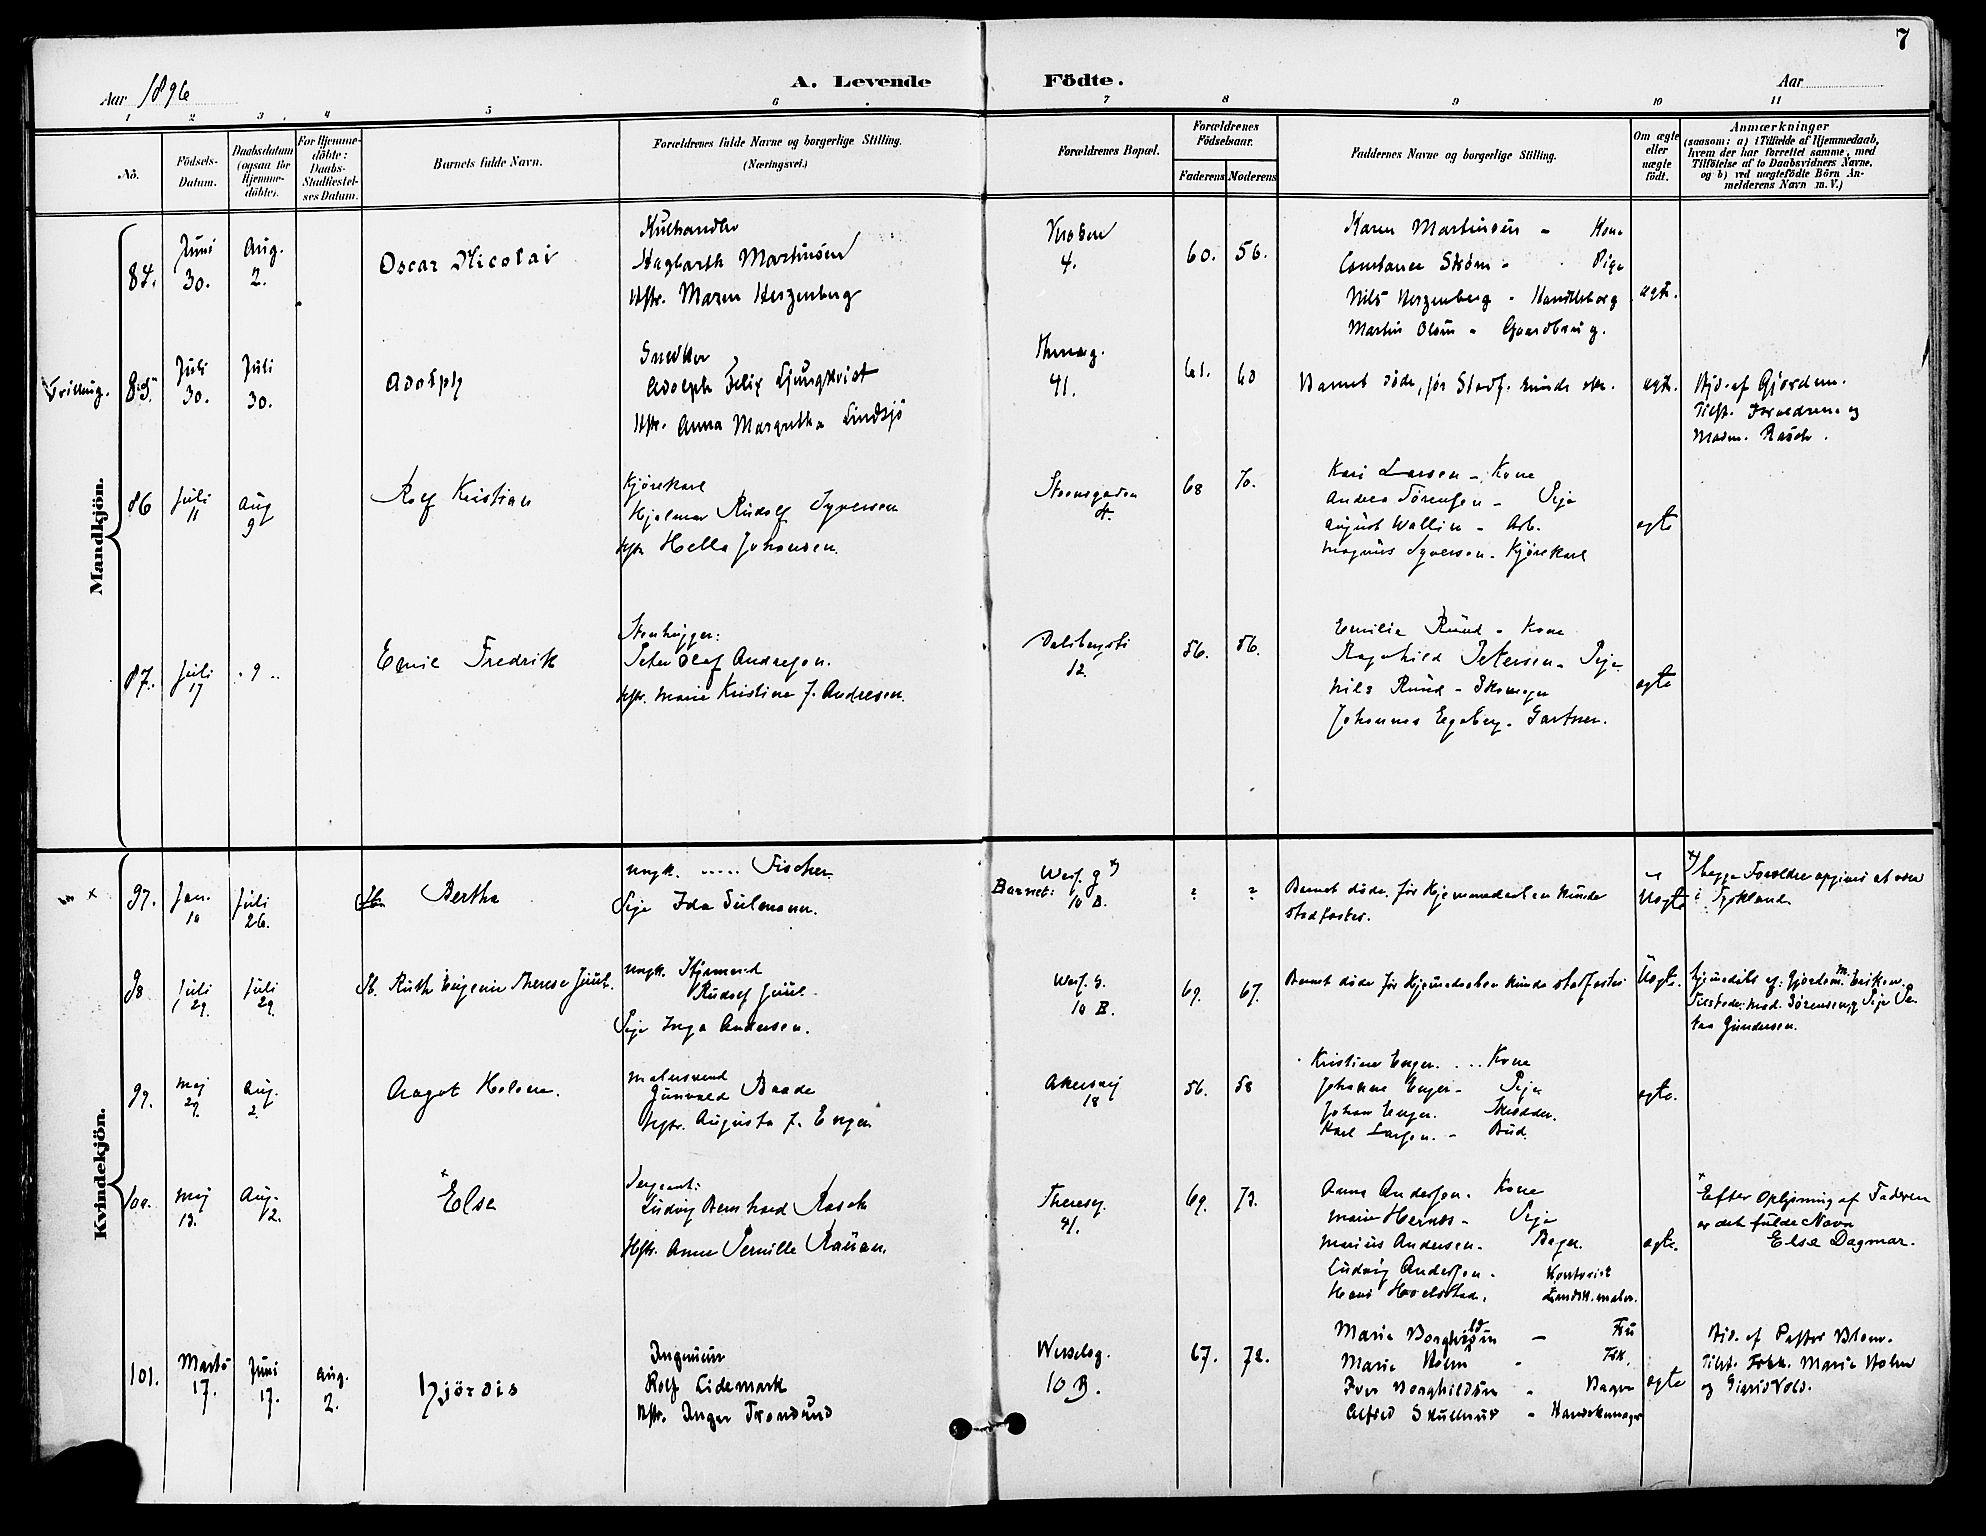 7
Aar 1896
A. Levende Födte.
Aar
1 2 3 4 5 6 7 8 9 10 11
No.
Födsels-Datum.
Daabsdatum (ogsaa for Hjemme-döbte).
For Hjemme-döbte: Daabs-Stadfæstel-ses Datum.
Barnets fulde Navn.
Forældrenes fulde Navne og borgerlige Stilling.
(Næringsvei.)
Forældrenes Bopæl.
Forældrenes Födselsaar.
Faderens Moderens
Faddernes Navne og borgerlige Stilling.
Om ægte eller uægte födt.
Anmærkninger
(saasom: a) i Tilfælde af Hjemmedaab,
hvem der har forrettet samme, med
Tilföielse af to Daabsvidners Navne,
og b) ved uægtefödte Börn An-
melderens Navn m. V.)
Mandkjön.
84. Juni 30. Aug. 2.
Oscar Nicolai
Kulhandler
Hagbarth Martinsen
Hstr. Maren Herzenberg
4.
60. 56.
Karen Martinsen - Kone
Constance Ström - Pige
Nils Herzenberg - Handelsborg
Martin Olsen - Gaardbrug.
ægte.
Trilling. 85. Juli 30. Juli 30.
Adolph
Snedker
Adolph Felix Ljungkvist
Hstr. Anna Margretha Lindsjö
Thereseg.
41.
61. 60
Barnet döde, för Stadf. kunde ske.
ægte.
Hjd. af Gjordem.
Tilst. Forældrene og
Madm. Rasch.
86 Juli 11 Aug 9
Rolf Kristian
Kjörekarl
Hjalmar Rudolf Syversen
Hstr. Hella Johansen.
Steensgaden
68 70.
Kari Larsen - Kone
Andrea Sörensen - Pige
August Wallin - Arb.
Magnus Syversen - Kjörekarl
ægte
87. Juli 17 " 9 "
Emil Fredrik
Stenhugger:
Peter Olaf Andresen.
Hstr. Marie Kristine J. Andresen.
Dalsbergsti
12.
56. 56.
Emilie Rund - Kone
Ragnhild Petersen - Pige
Nils Rund - Skomager
Johannes Egeberg - Gartner.
ægte
Kvindekjön.
97. Jan. 10 Juli 26.
Bertha
Ungk. ..... Fischer
Pige Ida Sulmann.
Barnet: 10 B.
? ?
Barnet döde för Hjemmedaaben kunde
stadfæstes.
Uægte
Begge Forældre opgives at være
i Tyskland
98 Juli 29. Juli 29.
Ruth Eugenie Therese Juul.
Ungk. Styrmand
Rudolf Juul
Pige Inga Andersen.
10 B.
69. 67.
Barnet döde för Hjemmedaaben kunde stadfæstes
Uægte.
Hjemmedöbt af: Gjordem. Eriksen.
Tilstede: Mad. Sörensen og Pige Pe-
tra Gundersen.
99. Maj 29. Aug. 2.
Aagot Helene.
Malersvend
Gunvald Baade
Hstr. Augusta J. Enger
Akersvej
18
56. 58
Kristine Enger. ... Kone
Johanne Enger - Pige
Johan Enger. Skrædder.
Karl Larsen. - Bud.
ægte.
100. Maj 13. Aug. 2.
× Else
Sergeant:
Ludvig Bernhard Rasch
Hstr. Anne Pernille Rauan.
Theresesg.
41.
69. 73.
Anna Andersen. Kone
Marie Hernes - Pige
Marius Andersen. - Bager.
Ludvig Andersen - Kontorist
Hans Hoelstad. Landsk.maler.
ægte.
× Efter Oplysning af Faderen
er det fulde Navn
Else Dagmar.
101. Marts 17. Juni 17. Aug. 2.
Hjördis
Ingeniör
Rolf Lidemark
Hstr. Inger Trondsund
Wesselsg.
10 B.
67. 72.
Marie Borghildsen - Fru
Marie Holm - Frk.
Iver Borghildsen - Bager
Alfred Skullerud - Handskemager
ægte
Hjd. af Pastor Blom.
Tilst. Frk. Marie Holm
og Sigrid Vold.